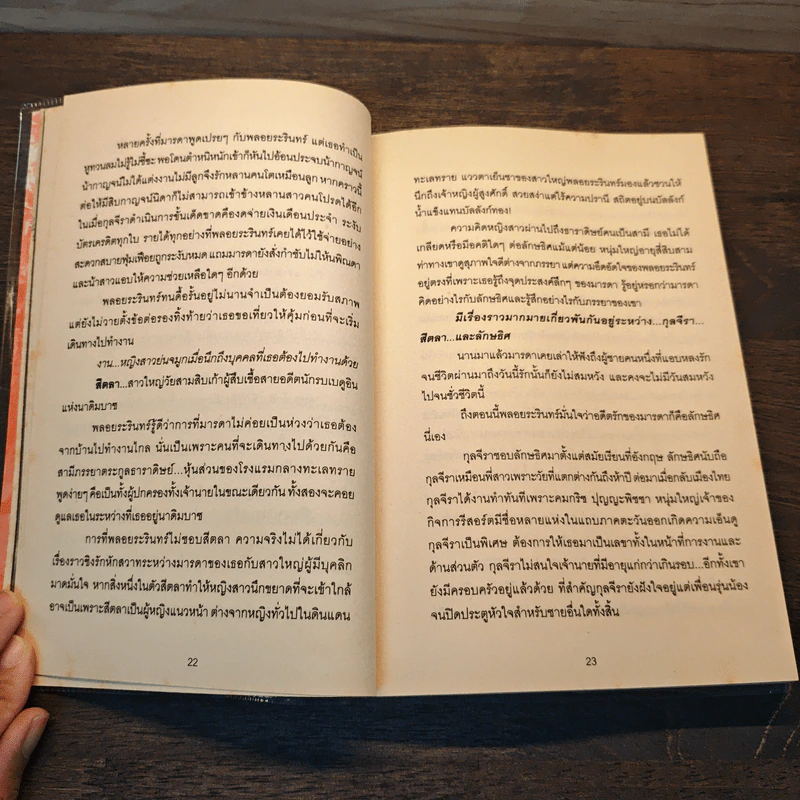 หลายครั้งที่มารดาพูดเปรยๆ กับพลอยระรินทร์ แต่เธอทำเป็น
หูทวนลมไม่รู้ไม่ชี้ซะ พอโดนตำหนิหนักเข้าก็หันไปอ้อนประจบน้ากาญจน์
น้ากาญจน์ไม่ได้แต่งงานไม่มีลูกจึงรักหลานคนโตเหมือนลูก หากคราวนี้
ต่อให้มีสิบกาญจน์นิดาก็ไม่สามารถเข้าข้างหลานสาวคนโปรดได้อีก
ในเมื่อกุลจีราดำเนินการขั้นเด็ดขาดคืองดจ่ายเงินเดือนประจำ ระงับ
บัตรเครดิตทุกใบ รายได้ทุกอย่างที่พลอยระรินทร์เคยได้ไว้ใช้จ่ายอย่าง
สะดวกสบายฟุ่มเฟือยถูกระงับหมด แถมมารดายังสั่งกำชับไม่ให้พิณดา
และน้าสาวแอบให้ความช่วยเหลือใดๆ อีกด้วย
พลอยระรินทร์ทนดื้อรั้นอยู่ไม่นานจำเป็นต้องยอมรับสภาพ
แต่ยังไม่วายตั้งข้อต่อรองทิ้งท้ายว่าเธอขอเที่ยวให้คุ้มก่อนที่จะเริ่ม
เดินทางไปทำงาน
งาน...หญิงสาวย่นจมูกเมื่อนึกถึงบุคคลที่เธอต้องไปทำงานด้วย
สีตลา...สาวใหญ่วัยสามสิบเก้าผู้สืบเชื้อสายอดีตนักรบเบดูอิน
แห่งนาดิมบาซ
พลอยระรินทร์รู้ดีว่าการที่มารดาไม่ค่อยเป็นห่วงว่าเธอต้อง
จากบ้านไปทำงานไกล นั่นเป็นเพราะคนที่จะเดินทางไปด้วยกันคือ
สามีภรรยาตระกูลธาราดิษย์...หุ้นส่วนของโรงแรมกลางทะเลทราย
พูดง่ายๆ คือเป็นทั้งผู้ปกครองทั้งเจ้านายในขณะเดียวกัน ทั้งสองจะคอย
ดูแลเธอในระหว่างที่เธออยู่นาดิมบาซ
การที่พลอยระรินทร์ไม่ชอบสีตลา ความจริงไม่ได้เกี่ยวกับ
เรื่องราวชิงรักหักสวาทระหว่างมารดาของเธอกับสาวใหญ่ผู้มีบุคลิก
มาดมั่นใจ หากสิ่งหนึ่งในตัวสีตลาทำให้หญิงสาวนึกขยาดที่จะเข้าใกล้
อาจเป็นเพราะสีตลาเป็นผู้หญิงแนวหน้า ต่างจากหญิงทั่วไปในดินแดน
22
ทะเลทราย แววตาเย็นชาของสาวใหญ่พลอยระรินทร์มองแล้วชวนให้
นึกถึงเจ้าหญิงผู้สูงศักดิ์ สวยสง่าแต่ไร้ความปรานี สถิตอยู่บนบัลลังก์
น้ำแข็งแทนบัลลังก์ทอง!
ความคิดหญิงสาวผ่านไปถึงธาราดิษย์คนเป็นสามี เธอไม่ได้
เกลียดหรือมีอคติใดๆ ต่อลักษธิศแม้แต่น้อย หนุ่มใหญ่อายุสี่สิบสาม
ท่าทางเขาดูสุภาพใจดีต่างจากภรรยา แต่ความอึดอัดใจของพลอยระรินทร์
อยู่ตรงที่เพราะเธอรู้ถึงจุดประสงค์ลึกๆ ของมารดา รู้อยู่หรอกว่ามารดา
คิดอย่างไรกับลักษธิศและรู้สึกอย่างไรกับภรรยาของเขา
มีเรื่องราวมากมายเกี่ยวพันกันอยู่ระหว่าง...กุลจีรา...
สีตลา...และลักษธิศ
นานมาแล้วมารดาเคยเล่าให้ฟังถึงผู้ชายคนหนึ่งที่แอบหลงรัก
จนชีวิตผ่านมาถึงวันนี้รักนั้นก็ยังไม่สมหวัง และคงจะไม่มีวันสมหวัง
ไปจนชั่วชีวิตนี้
ถึงตอนนี้พลอยระรินทร์มั่นใจว่าอดีตรักของมารดาก็คือลักษธิศ
นี่เอง
กุลจีราชอบลักษธิศมาตั้งแต่สมัยเรียนที่อังกฤษ ลักษธิศนับถือ
กุลจีราเหมือนพี่สาวเพราะวัยที่แตกต่างกันถึงห้าปี ต่อมาเมื่อกลับเมืองไทย
กุลจีราได้งานทำทันทีเพราะคมกริช ปุญญะพิชชา หนุ่มใหญ่เจ้าของ
กิจการรีสอร์ตมีชื่อหลายแห่งในแถบภาคตะวันออกเกิดความเอ็นดู
กุลจีราเป็นพิเศษ ต้องการให้เธอมาเป็นเลขาทั้งในหน้าที่การงานและ
ด้านส่วนตัว กุลจีราไม่สนใจเจ้านายที่มีอายุแก่กว่าเกินรอบ...อีกทั้งเขา
ยังมีครอบครัวอยู่แล้วด้วย ที่สำคัญกุลจีรายังฝังใจอยู่แต่เพื่อนรุ่นน้อง
จนปิดประตูหัวใจสำหรับชายอื่นใดทั้งสิ้น
23